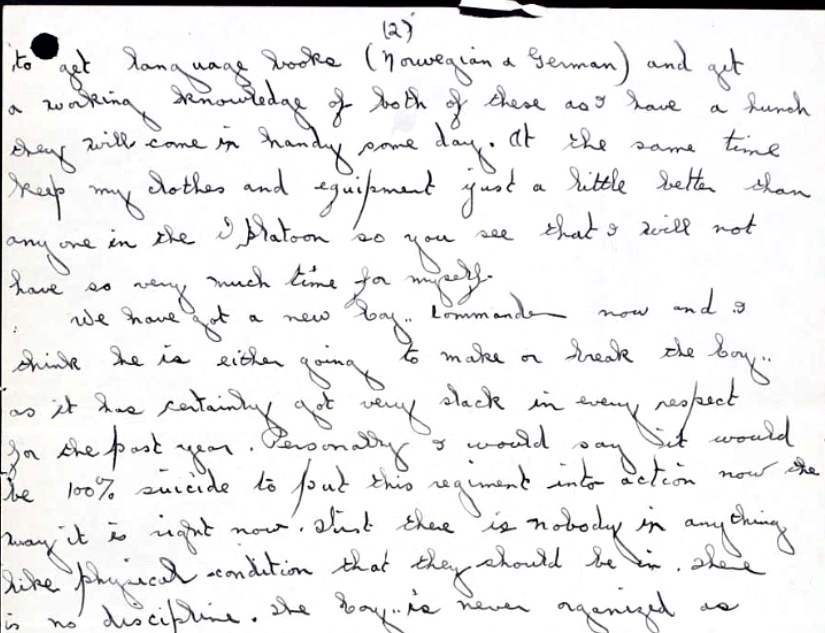 (2)
to get language books (Norwegian & German) and get
a working knowledge of both of these as I have a hunch
they will come in handy some day. At the same time
keep my clothes and equipment just a little better than
any one in the platoon so you see that I will not
have so very much time for myself.
We have got a new Coy.. Commander now and I
think he is either going to make or break the Coy..
as it has certainly got very slack in every respect
for the past year. Personally I would say it would
be 100% suicide to put this regiment into action now the
way it is right now. First there is nobody in anything
like physical condition that they should be in. There
is no discipline. The Coy.. is never organized as